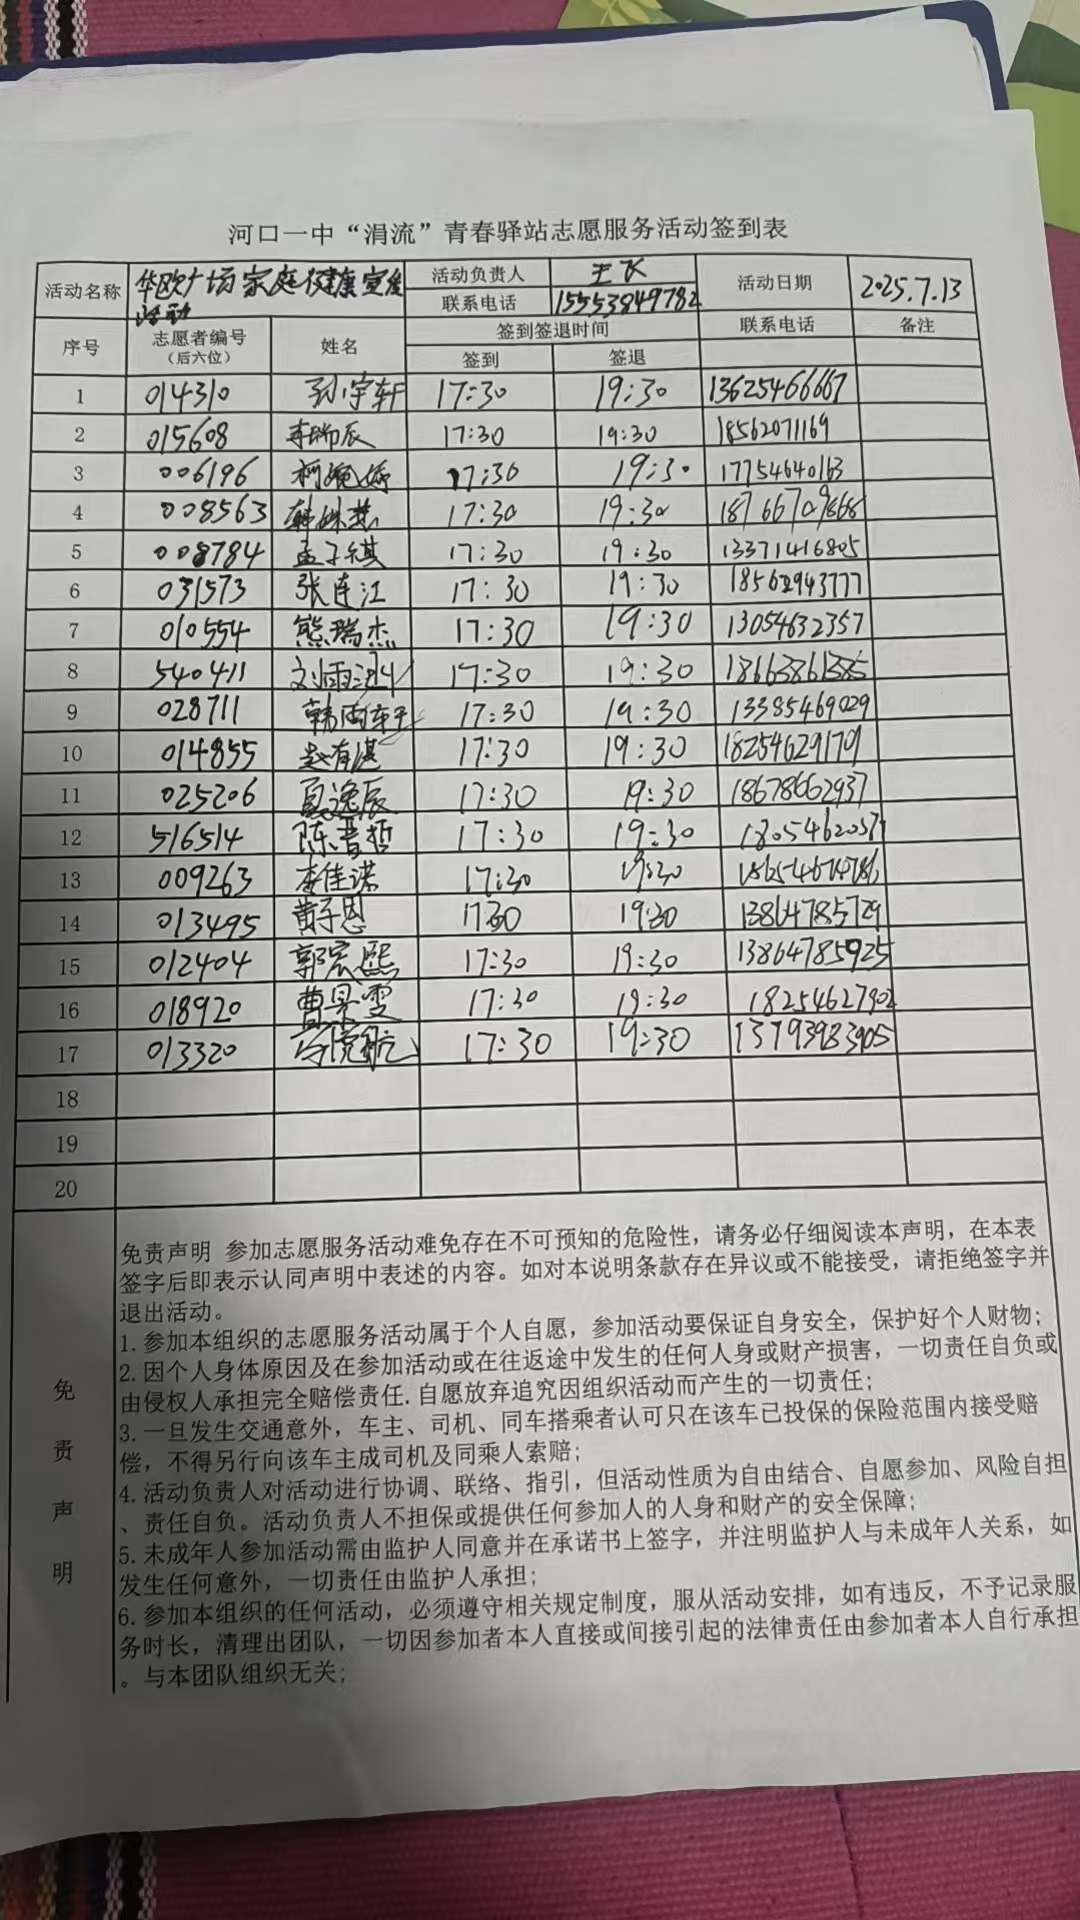 河口一中“涓流”青春驿站志愿服务活动签到表
活动名称 华欧广场家庭健康宣传活动 活动负责人 王飞 活动日期 2025.7.13
联系电话 15553849782
序号 志愿者编号（后六位） 姓名 签到签退时间 联系电话 备注
签到 签退
1 014310 孙宇轩 17:30 19:30 13625466667
2 015608 李瑞辰 17:30 19:30 18562071169
3 006196 柯婉婷 17:30 19:30 17754640163
4 008563 韩姝慧 17:30 19:30 18766709868
5 008784 孟子祺 17:30 19:30 13371416805
6 031573 张连江 17:30 19:30 18562943777
7 010554 熊瑞杰 17:30 19:30 13054632357
8 540411 刘雨 17:30 19:30 18663861385
9 028711 韩雨轩 17:30 19:30 13385469029
10 014855 赵有湛 17:30 19:30 18254629179
11 025206 夏逸辰 17:30 19:30 18678662937
12 516514 陈晋哲 17:30 19:30
13 009263 李佳诺 17:30 19:30
14 013495 黄子恩 17:30 19:30 13864785729
15 012404 郭宏熙 17:30 19:30 13864785925
16 018920 曹景雯 17:30 19:30 18254627902
17 013320 17:30 19:30 13793983905
18
19
20
免责声明
免责声明 参加志愿服务活动难免存在不可预知的危险性，请务必仔细阅读本声明，在本表
签字后即表示认同声明中表述的内容。如对本说明条款存在异议或不能接受，请拒绝签字并
退出活动。
1.参加本组织的志愿服务活动属于个人自愿，参加活动要保证自身安全，保护好个人财物；
2.因个人身体原因及在参加活动或在往返途中发生的任何人身或财产损害，一切责任自负或
由侵权人承担完全赔偿责任.自愿放弃追究因组织活动而产生的一切责任；
3.一旦发生交通意外，车主、司机、同车搭乘者认可只在该车已投保的保险范围内接受赔
偿，不得另行向该车主成司机及同乘人索赔；
4.活动负责人对活动进行协调、联络、指引，但活动性质为自由结合、自愿参加、风险自担
、责任自负。活动负责人不担保或提供任何参加人的人身和财产的安全保障；
5.未成年人参加活动需由监护人同意并在承诺书上签字，并注明监护人与未成年人关系，如
发生任何意外，一切责任由监护人承担；
6.参加本组织的任何活动，必须遵守相关规定制度，服从活动安排，如有违反，不予记录服
务时长，清理出团队，一切因参加者本人直接或间接引起的法律责任由参加者本人自行承担
。与本团队组织无关；